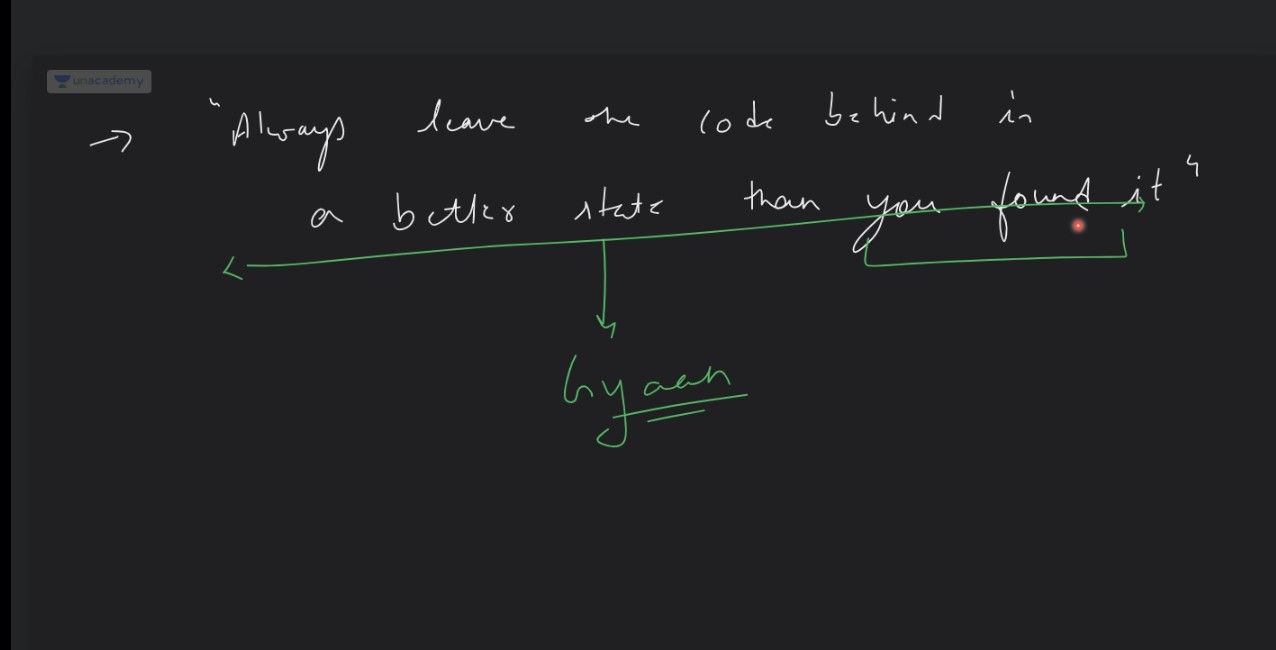 unacademy
→ "Always leave the code behind in
a better state than you found it"
Gyaan